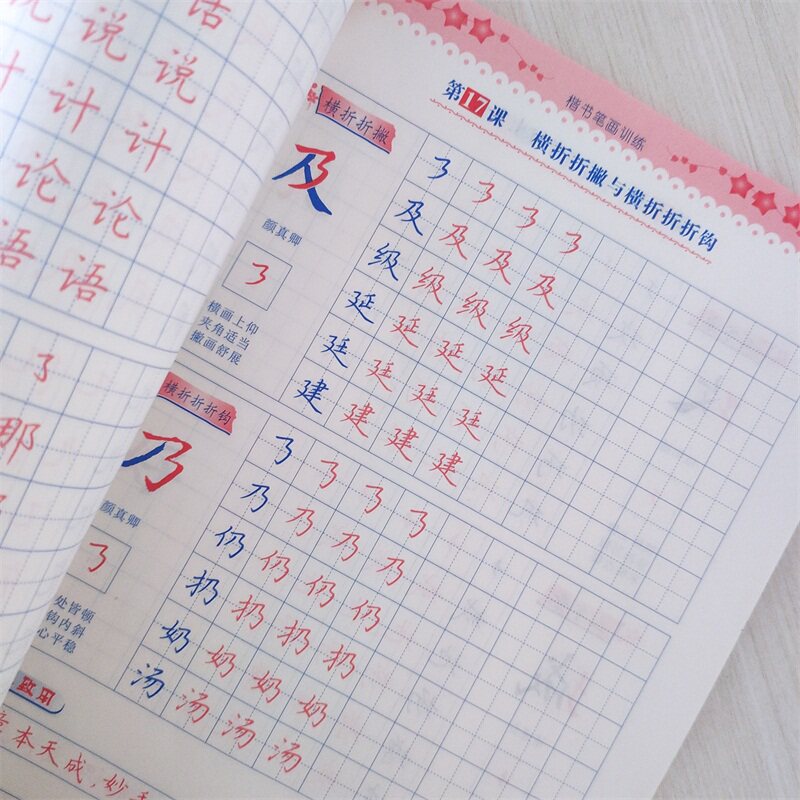 话
说 说
计 计 计
论 论
语 语
那
楷书笔画训练
第17课 横折折撇与横折折折钩
横折折撇
及
颜真卿
横画上仰
夹角适当
撇画舒展
及 及 及 及
级 级 级 级
延 延 延 延
廷 廷 廷 廷
建 建 建 建
横折折折钩
乃
颜真卿
处皆顿
钩内斜
心平稳
乃 乃 乃 乃
仍 仍 仍 仍
扔 扔 扔 扔
奶 奶 奶 奶
汤 汤 汤 汤
本天成，妙